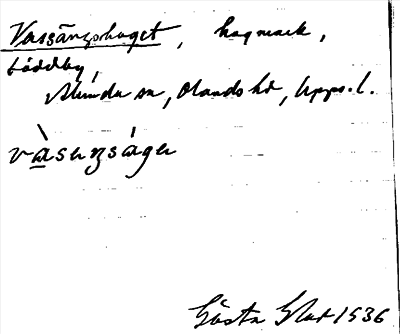 Vassängshaget, hagmark,
Löddby,
Almunda sn, Olands hd, Upps. l.
vàsengságer
Gösta Elat 1936